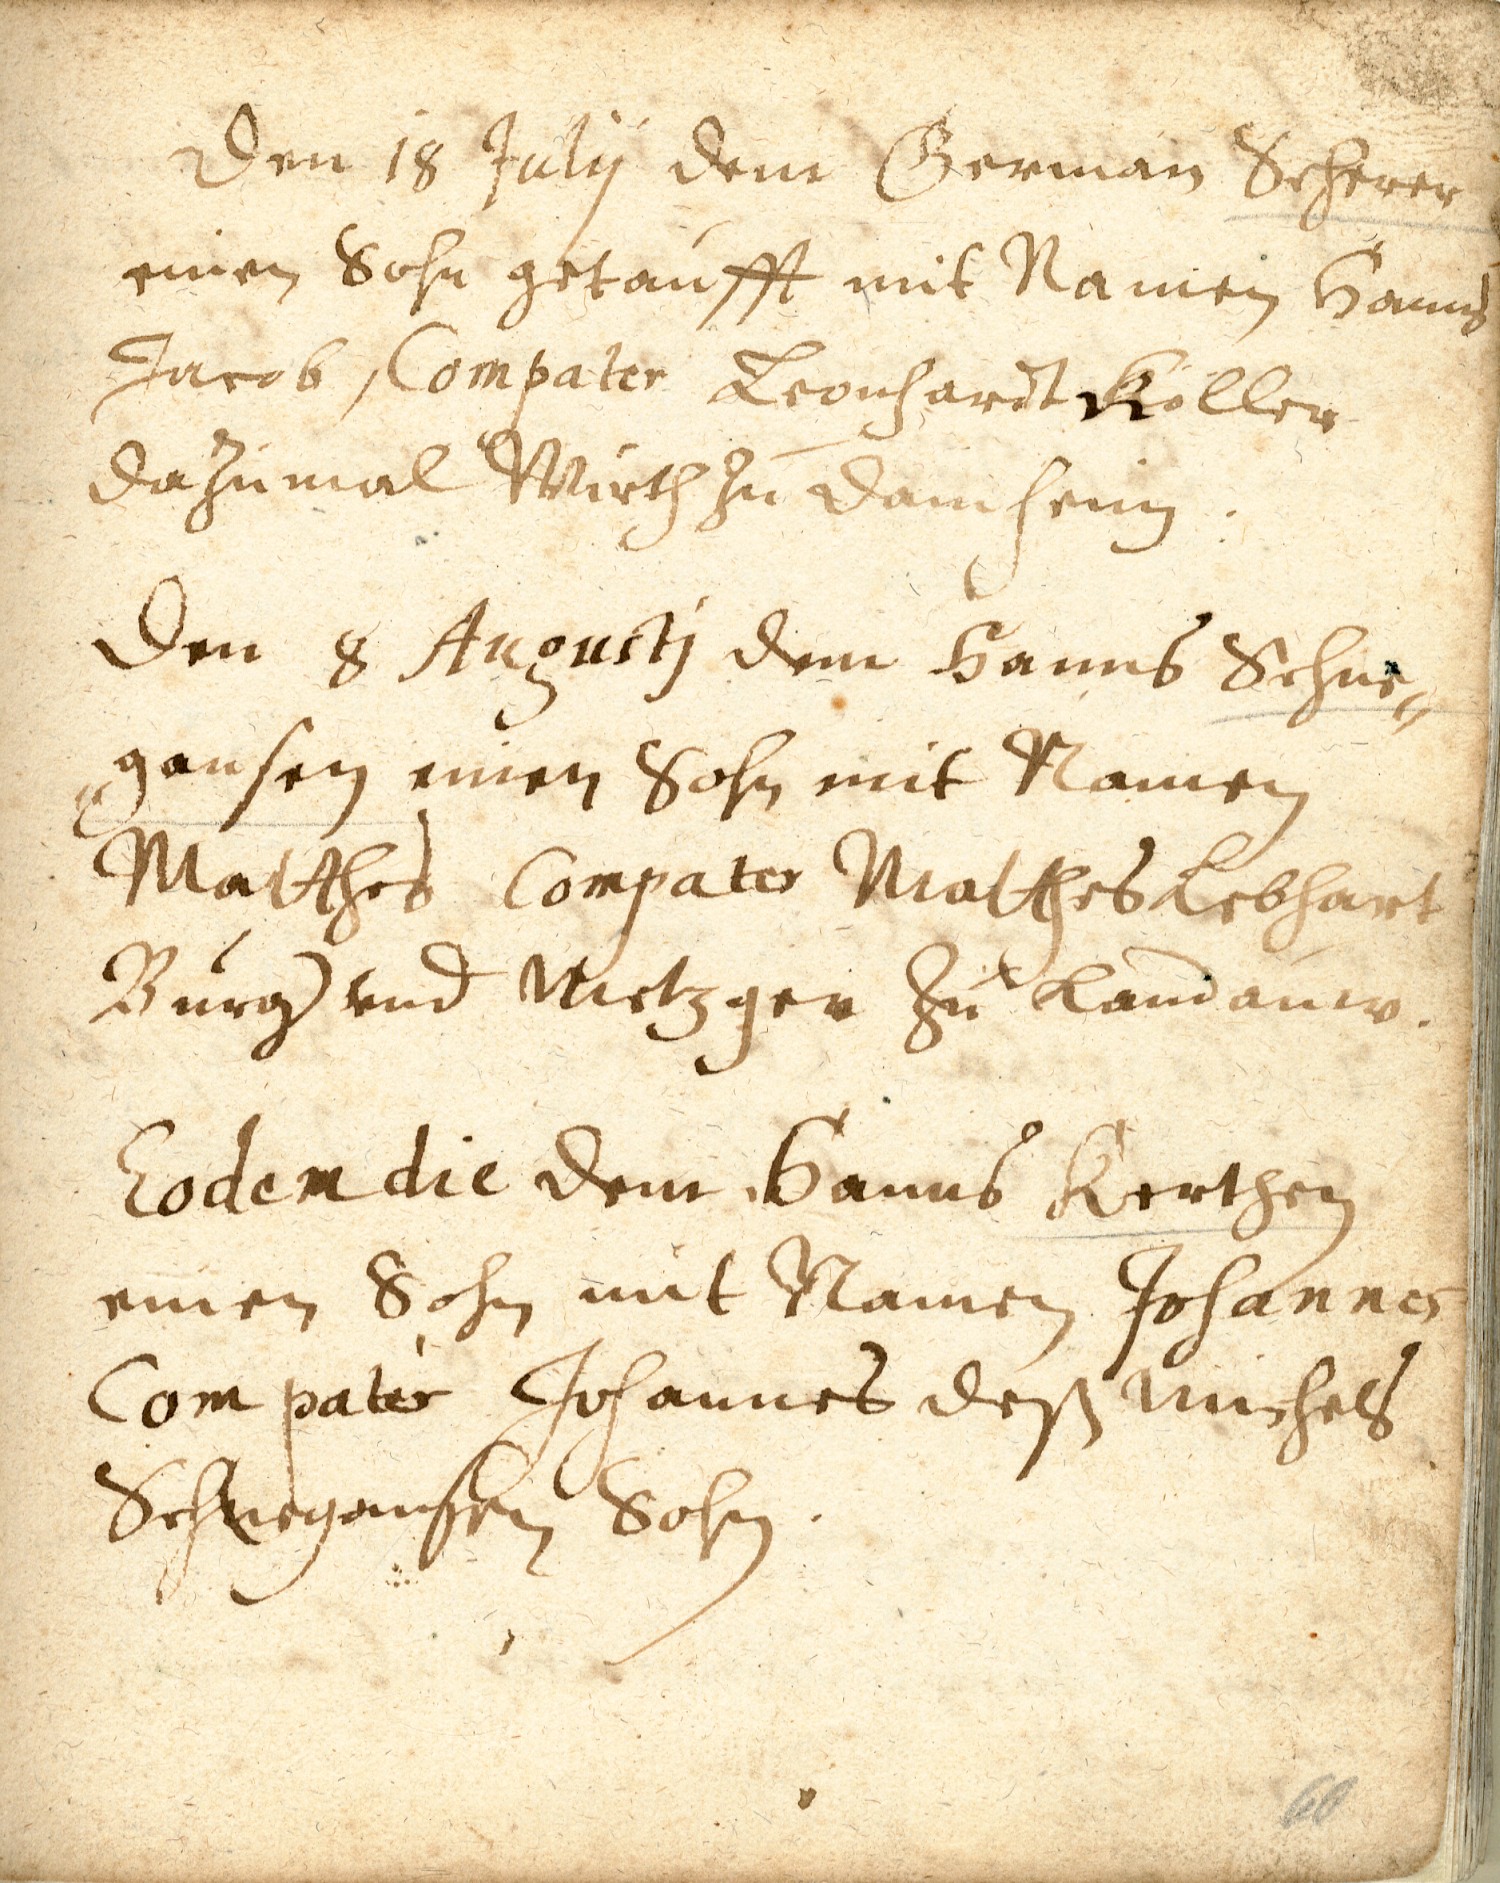 Den 18 Julij dem German Scherer
einen Sohn getaufft mit Namen Hanns
Jacob, Compater Leonhardt Köller
dazumal Wirth zu Damheim.
Den 8 Augustj dem Hanns Schne-
gansen einen Sohn mit Namen
Matthes Compater Matthes Lebhart
Burg) vnd Metzger zu Landauw.
Eodem die dem Hanns Kerthen
einen Sohn mit Namen Johannes
Compater Johannes deß Michels
Schnegansen Sohn.
60